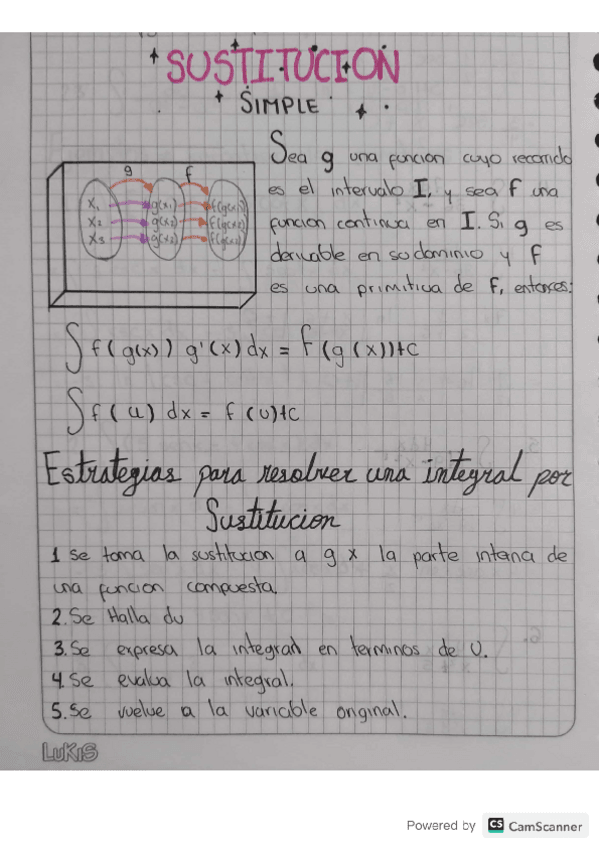 SUSTITUCION
SIMPLE
g f
X₁ g(x₁) f(g(x₁))
X₂ g(x₂) f(g(x₂))
X₃ g(x₃) f(g(x₃))
Sea g una funcion cuyo recorrido
es el intervalo I, y sea f una
funcion continua en I. Si g es
derivable en su dominio y F
es una primitiva de F, entonces:
∫ f(g(x)) g'(x) dx = f(g(x))+c
∫ f(u) dx = f(u)+c
Estrategias para resolver una integral por
Sustitucion
1 se toma la sustitucion a g x la parte interna de
una funcion compuesta.
2. Se Halla du
3. Se expresa la integral en terminos de U.
4. Se evalua la integral.
5. Se vuelve a la variable original.
LUKIS
Powered by CS CamScanner